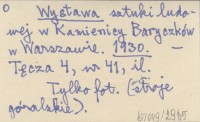 o Wystawa sztuki ludo-
wej w Kamienicy Baryczków
w Warszawie. 1930. —
Tęcza 4, nr 41, il.
Tylko fot. (stroje
góralskie).
b7049/2985